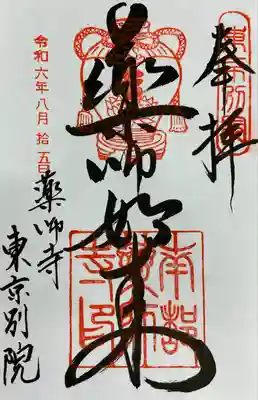 奉拝
薬師如来
令和六年八月拾五日
薬師寺
東京別院